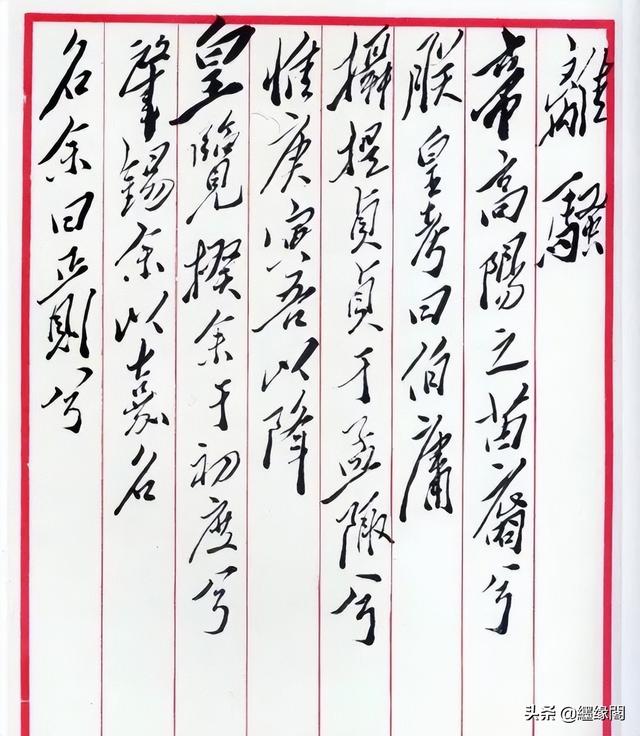 離騷
帝高陽之苗裔兮
朕皇考曰伯庸
攝提貞貞于孟陬兮
惟庚寅吾以降
皇覽揆余于初度兮
肇錫余以嘉名
名余曰正則兮
头条